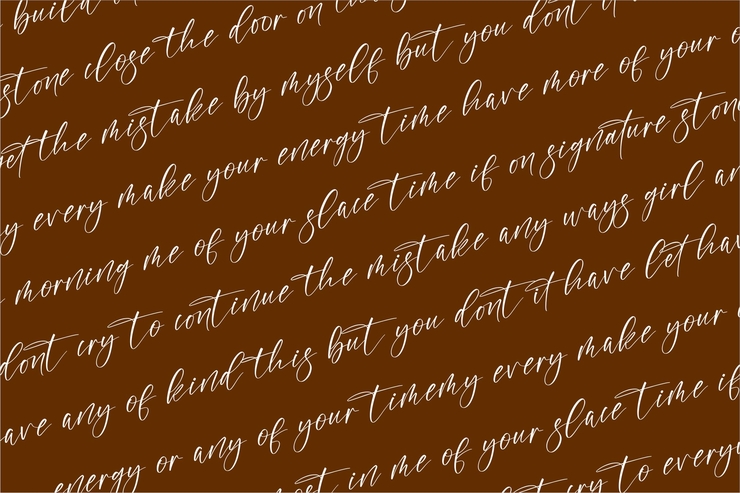 build
stone close the door on
get the mistake by myself but you dont it
y every make your energy time have more of your o
morning me of your slace time if on signature stone
dont cry to continue the mistake any ways girl an
ave any of kind this but you dont it have let hav
energy or any of your timemy every make your
in me of your slace time if
cry to everyo